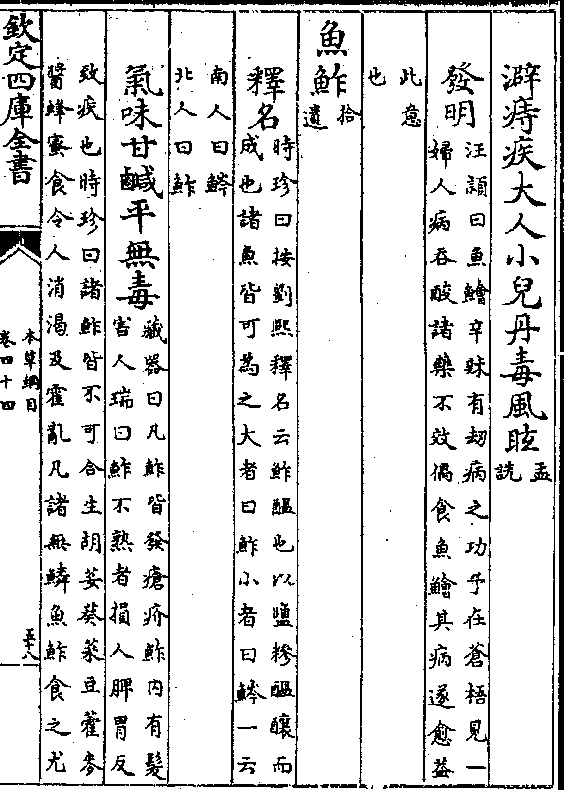 澼痔疾大人小兒丹毒風眩孟
詵
發明汪頴曰魚鱠辛辣有刼病之功予在蒼梧見一
婦人病吞酸諸藥不效偶食魚鱠其病遂愈葢
此意
也
魚鮓拾
遺
釋名時珍曰按劉熙釋名云鮓醖也以鹽糝醖釀而
成也諸魚皆可為之大者曰鮓小者曰䰼一云
南人曰䰼
北人曰鮓
氣味甘鹹平無毒藏器曰凡鮓皆發瘡疥鮓内有髮
害人瑞曰鮓不熟者損人脾胃反
致疾也時珍曰諸鮓皆不可合生胡荽葵菜豆藿麥
醬蜂蜜食令人消渴及霍亂凡諸無鱗魚鮓食之尤
欽定四庫全書
本草綱目
卷四十四
五十八